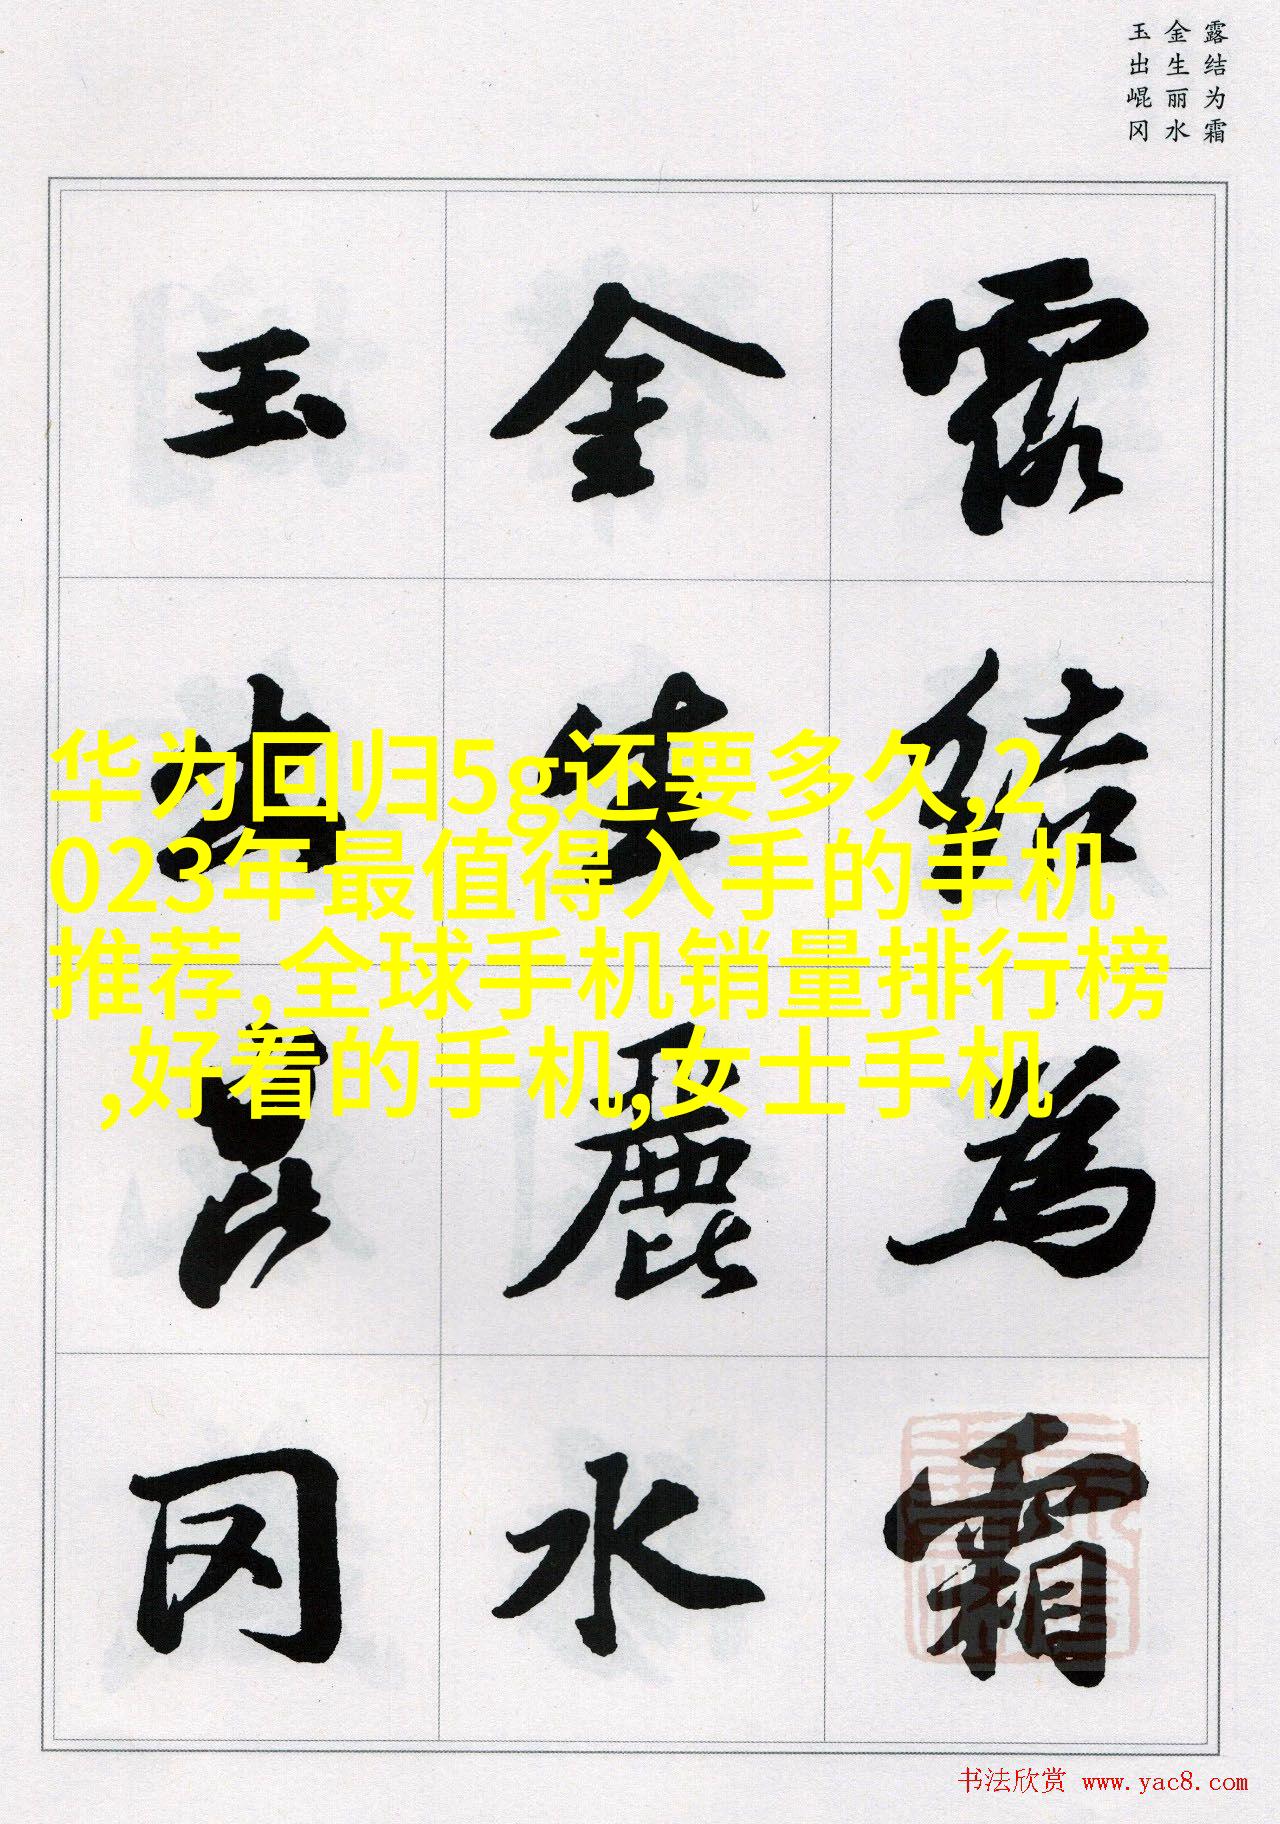 露结为霜
金生丽水
玉出崐冈
露結為霜
金生麗水
玉出崑冈
华为回归5g还要多久,2
023年最值得入手的手机
推荐,全球手机销量排行榜
,好看的手机,女士手机
书法欣赏 www.yac8.com